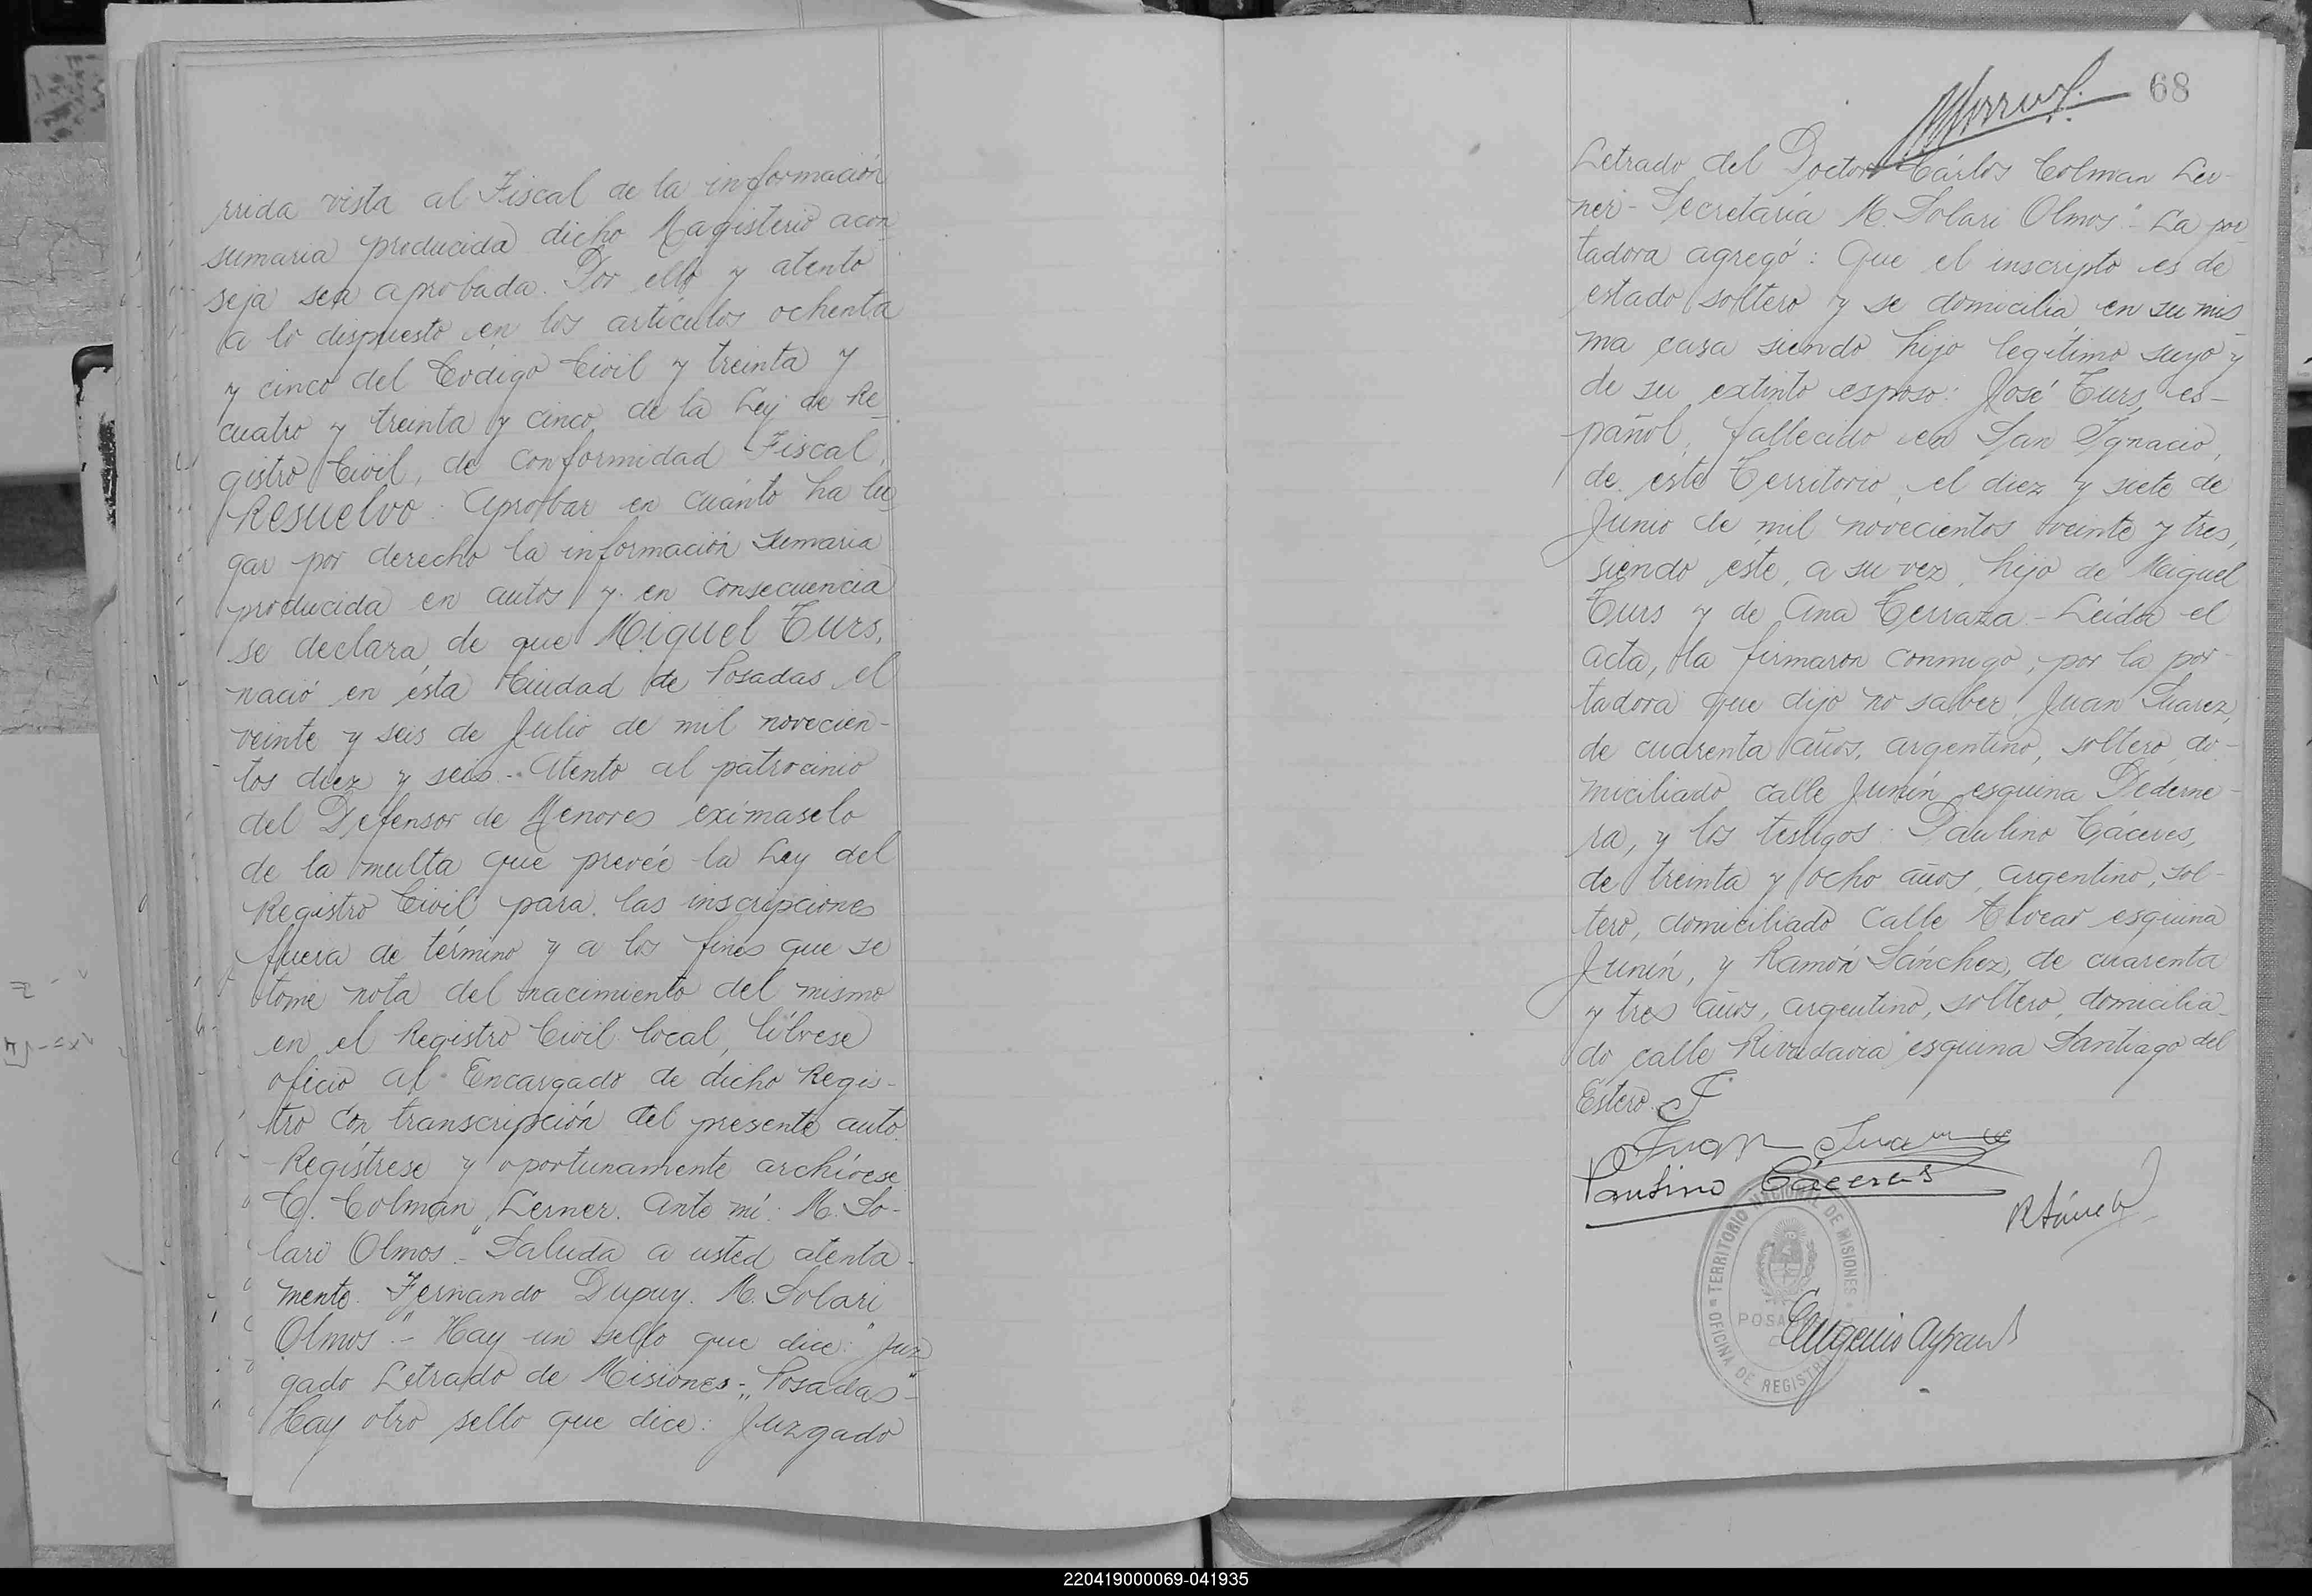 rrida vista al Fiscal de la información
sumaria producida dicho Magisterio acon-
seja sea aprobada. Por ello y atento
a lo dispuesto en los artículos ochenta
y cinco del Código Civil y treinta y
cuatro y treinta y cinco de la Ley de Re-
gistro Civil, de conformidad Fiscal,
Resuelvo: Aprobar en cuánto ha lu-
gar por derecho la información sumaria
producida en autos y en consecuencia
se declara, de que Miguel Turs,
nació en ésta Ciudad de Posadas el
veinte y seis de Julio de mil novecien-
tos diez y seis.- Atento al patrocinio
del Defensor de Menores exímaselo
de la multa que prevée la Ley del
Registro Civil para las inscripciones
fuera de término y a los fines que se
tome nota del nacimiento del mismo
en el Registro Civil local, líbrese
oficio al Encargado de dicho Regis-
tro con transcripción del presente auto.
Regístrese y oportunamente archívese
C. Colman Lerner. Ante mí: M. So-
lari Olmos." Saluda a usted atenta-
mente. Fernando Dupuy. M. Solari
Olmos."- Hay un sello que dice: "Juz-
gado Letrado de Misiones - Posadas"-
Hay otro sello que dice: Juzgado
68
Letrado del Doctor Cárlos Colman Ler-
ner - Secretaría M. Solari Olmos"- La por-
tadora agregó: Que el inscripto es de
estado soltero y se domicilia en su mis-
ma casa siendo hijo legítimo suyo y
de su extinto esposo: José Turs, es-
pañol, fallecido en San Ignacio,
de este Territorio, el diez y siete de
Junio de mil novecientos veinte y tres,
siendo este, a su vez, hijo de Miguel
Turs y de Ana Terraza.- Leída el
acta, la firmaron conmigo, por la por-
tadora que dijo no saber, Juan Suarez,
de cuarenta años, argentino, soltero, do-
miciliado calle Junín esquina Pederne-
ra, y los testigos: Paulino Cáceres,
de treinta y ocho años, argentino, sol-
tero, domiciliado calle Alvear esquina
Junín, y Ramón Sánchez, de cuarenta
y tres años, argentino, soltero, domicilia-
do calle Rivadavia esquina Santiago del
Estero.
Juan Suarez
Paulino Cáceres
R Sánchez
TERRITORIO NACIONAL DE MISIONES
OFICINA DE REGISTRO
POSADAS
Eugenio
220419000069-041935